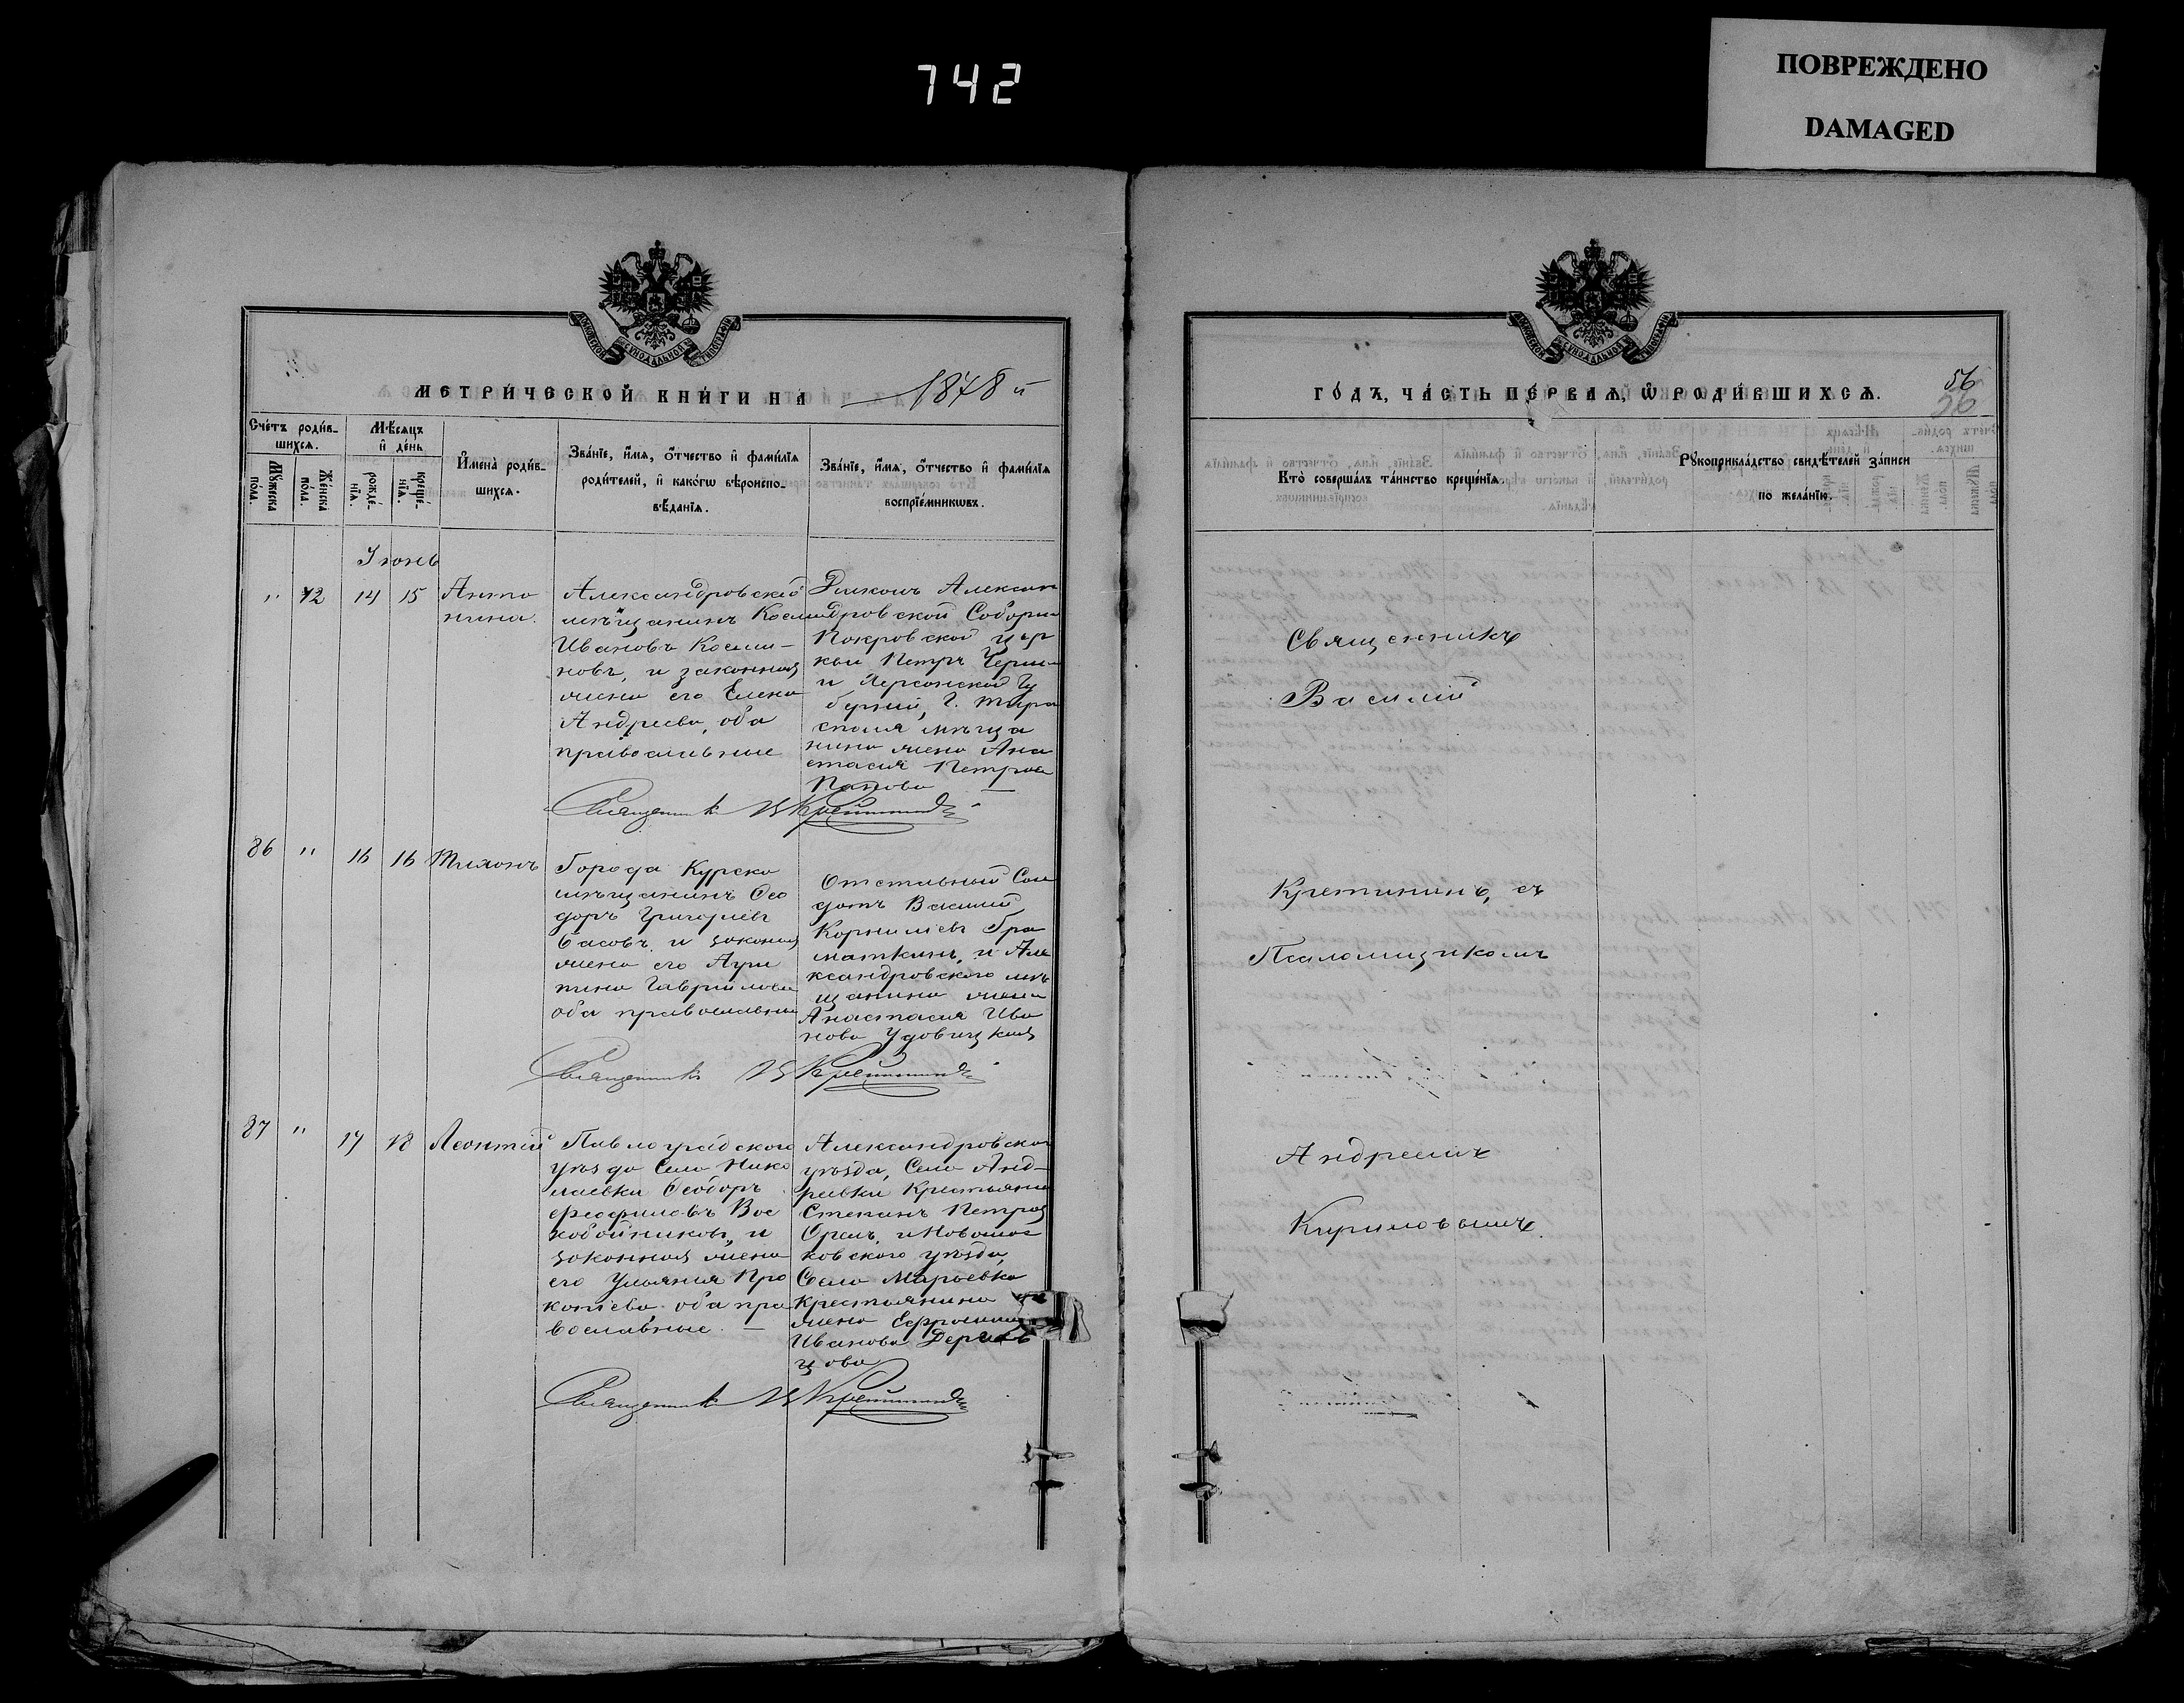 742
ПОВРЕЖДЕНО
DAMAGED
МОСКОВСКОЙ СѴНОДАЛЬНОЙ ТИПОГРАФІИ
МЕТРИ́ЧЕСКОЙ КНИ́ГИ НА 1878 й
Сче́тъ роди́в-
шихсѧ.
Мꙋ́жеска по́ла.
Же́нска по́ла.
Мѣ́сѧцъ
и҆ де́нь
рожде́-
нїѧ.
креще́-
нїѧ.
И҆мена̀ роди́в-
шихсѧ.
Зва́нїе, и҆́мѧ, ѻ҆́тчество и҆ фами́лїѧ
роди́телей, и҆ како́гѡ вѣроиспо-
вѣ́данїѧ.
Зва́нїе, и҆́мѧ, ѻ҆́тчество и҆ фами́лїѧ
воспрїе́мникѡвъ.
Іюнь
" 72 14 15 Анто
нина.
Александровскій
мѣщанинъ Косма
Ивановъ Косми-
новъ, и законная
жена его Елена
Андреева, оба
православные
Дьяконъ Алексан
дровской Соборно
Покровской цер
кви Петръ
и Херсонской Гу
берніи, г. Тира
споля мѣща
нина жена Ана
стасія Петрова
Попова
Священникъ В Кретининъ
86 " 16 16 Тихонъ
Города Курска
мѣщанинъ Ѳео
доръ Григорьевъ
Басовъ и законная
жена его Агри
пина Гавріилова
оба православные
Отставный Сол
датъ Василій
Корниліевъ Гра
маткинъ, и Але
ксандровского мѣ
щанина жена
Анастасія Ива
нова Удовицкая
Священникъ В Кретининъ
87 " 17 18 Леонтій
Павлоградского
уѣзда Села Нико
лаевки Ѳеодоръ
Ѳеофиловъ Вос
кобойниковъ, и
законная жена
его Ульянія Про
копіева оба пра
вославные. —
Александровского
уѣзда, Села Анд-
реевки Крестьянинъ
Степанъ Петровъ
Орелъ, и Новомос
ковского уѣзда,
Села Марьевки
крестьянина
жена
Иванова
цова
Священникъ В Кретининъ
МОСКОВСКОЙ СѴНОДАЛЬНОЙ ТИПОГРАФІИ
ГО́ДЪ, ЧА́СТЬ ПЕ́РВАѦ, Ѡ҆ РОДИ́ВШИХСѦ.
56
56
Кто̀ соверша́лъ та́инство креще́нїѧ
Рꙋкоприкла́дство свидѣ́телей за́писи
по жела́нїю.
Священникъ
Василій
Кретининъ, съ
Псаломщикомъ
Андреемъ
Кириловымъ.